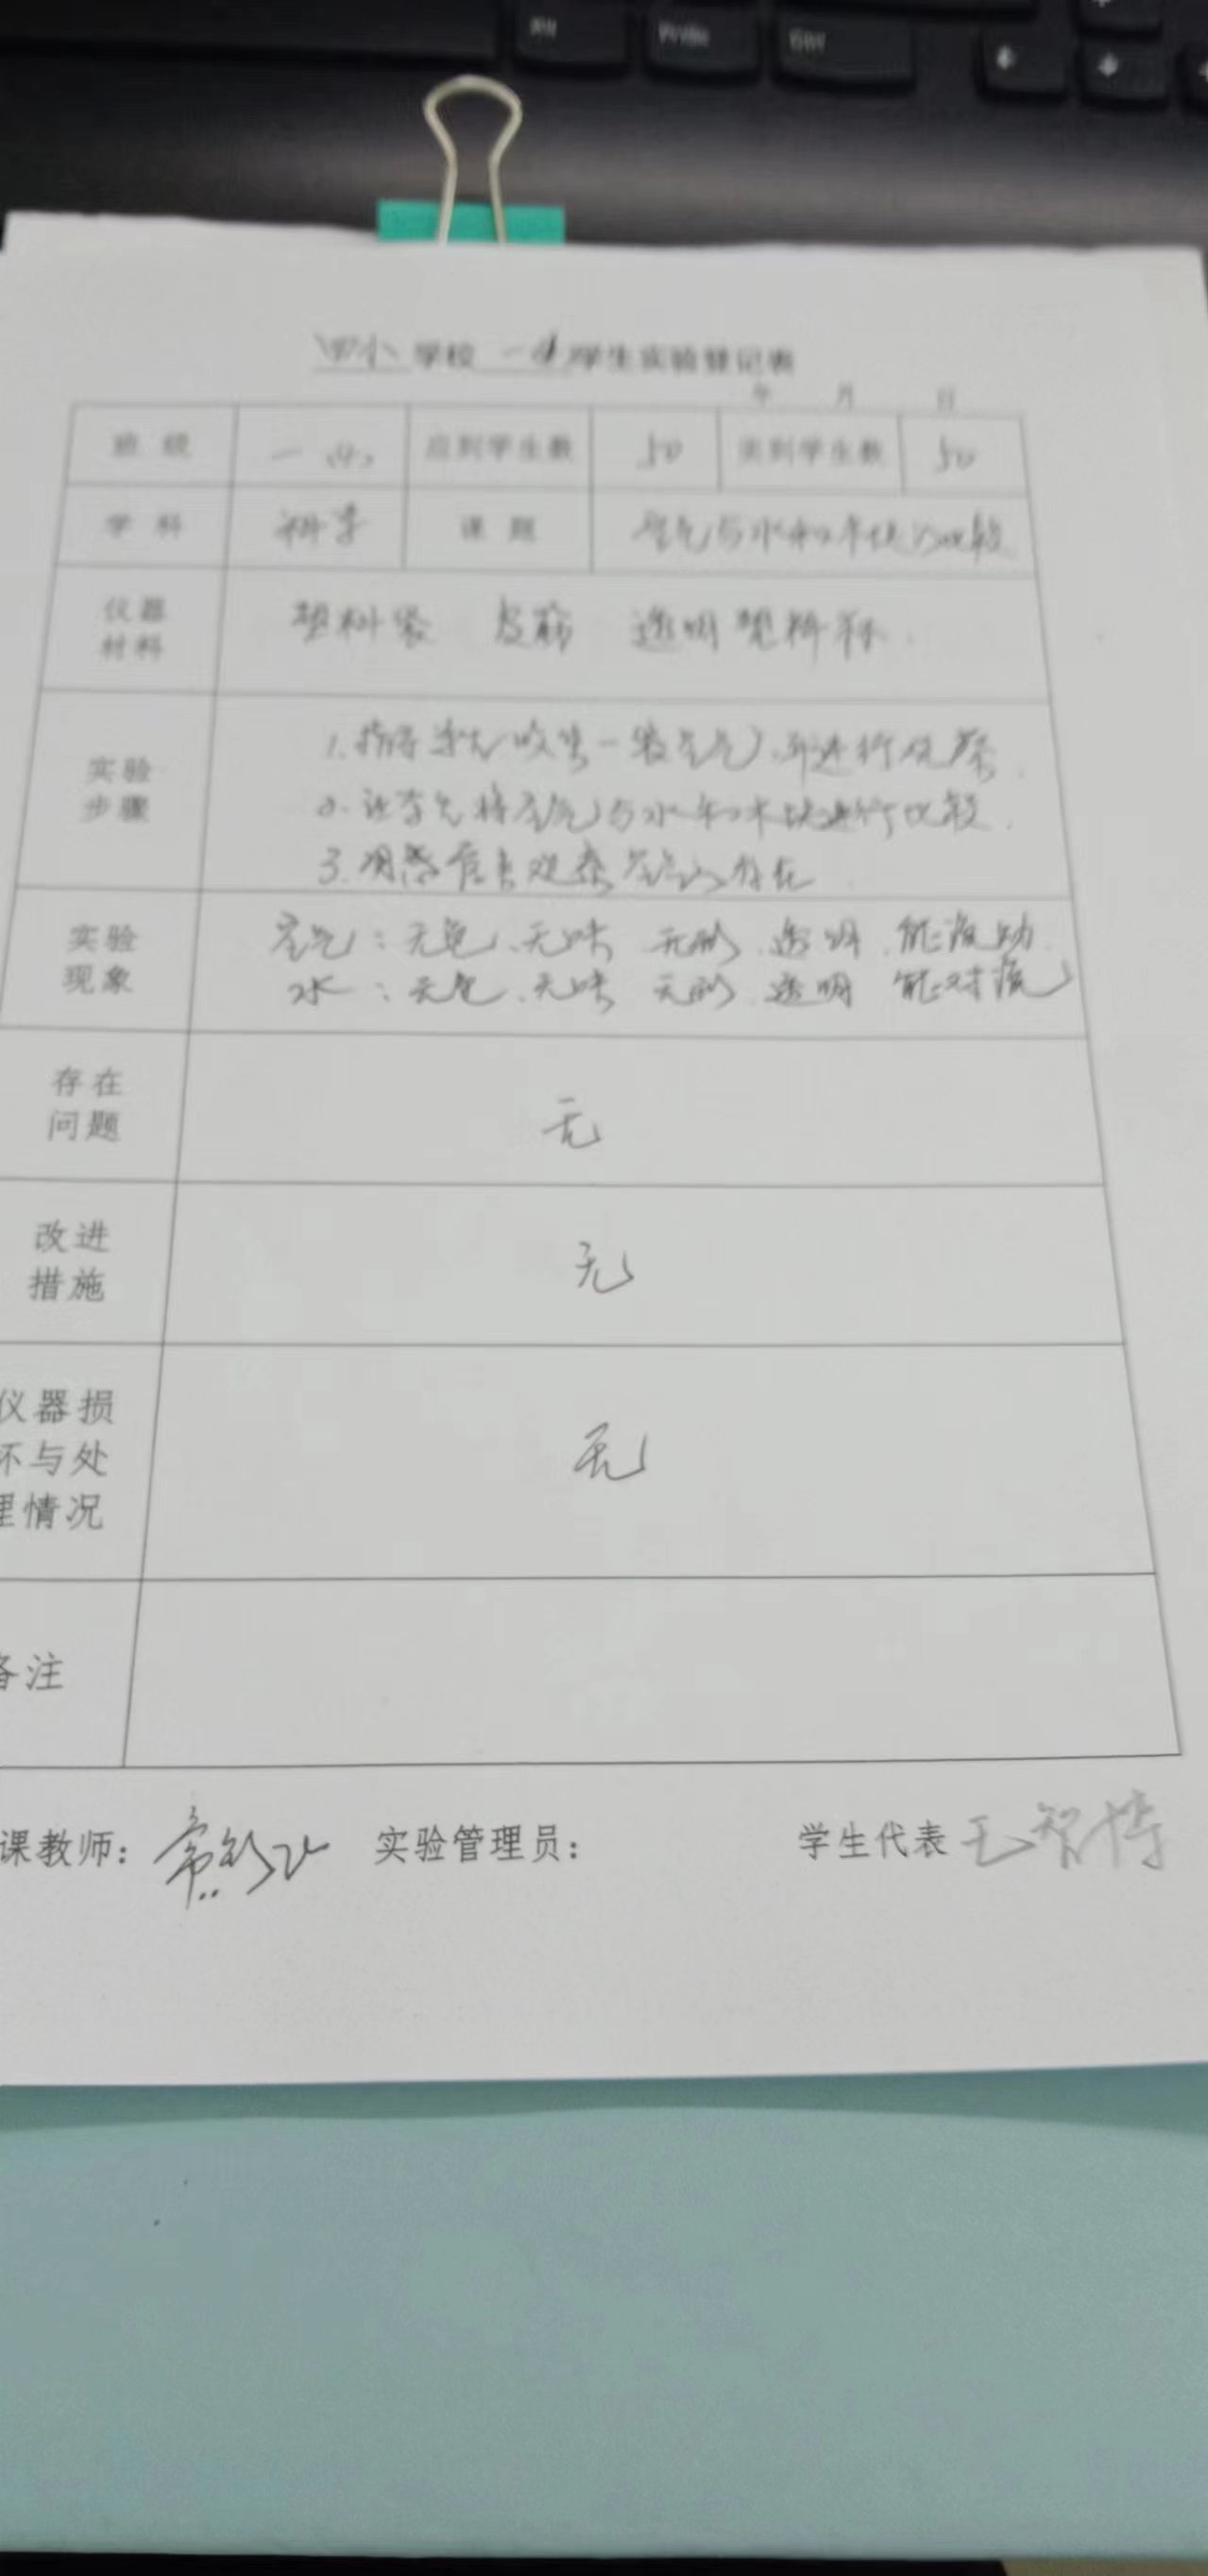 Alt
四小 学校 一 学生实验登记表
年 月 日
班级 一(4) 应到学生数 50 实到学生数 50
学科 科学 课题 空气与水和木块的比较
仪器材料 塑料袋 皮筋 透明塑料杯
实验步骤 1.指导学生收集一袋空气,并进行观察.
2.让学生将空气与水和木块进行比较.
3.用感官去观察空气的存在
实验现象 空气:无色、无味 无形 透明 能流动
水:无色、无味 无形 透明 能对流
存在问题 无
改进措施 无
仪器损坏与处理情况 无
备注
课教师: 实验管理员: 学生代表 王智博